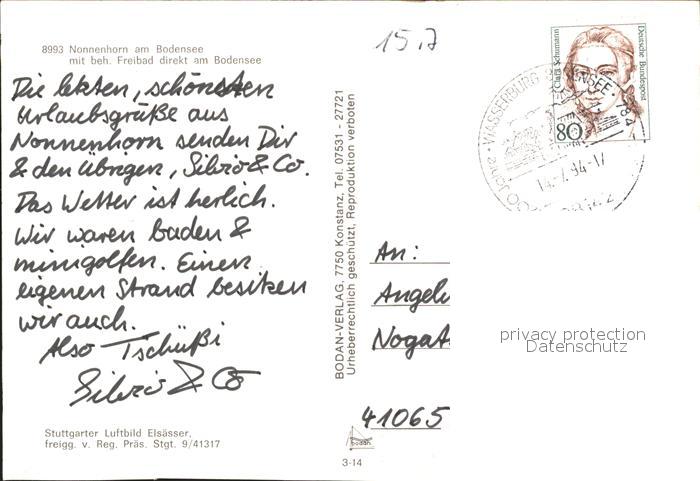 8993 Nonnenhorn am Bodensee
mit beh. Freibad direkt am Bodensee
Die letzten, schönsten
Urlaubsgrüße aus
Nonnenhorn senden Dir
& den Übrigen, Silvio & Co.
Das Wetter ist herlich.
Wir waren baden &
minigolfen. Einen
eigenen Strand besitzen
wir auch.
Also Tschüßi
Silvio & Co
Stuttgarter Luftbild Elsässer,
freigg. v. Reg. Präs. Stgt. 9/41317
BODAN-VERLAG, 7750 Konstanz, Tel. 07531 - 27721
Urheberrechtlich geschützt, Reproduktion verboten
bodan
3-14
15.7
Clara Schumann
Deutsche Bundespost
80
WASSERBURG
784
Jahre
An:
Angel
Nogat
41065
privacy protection
Datenschutz